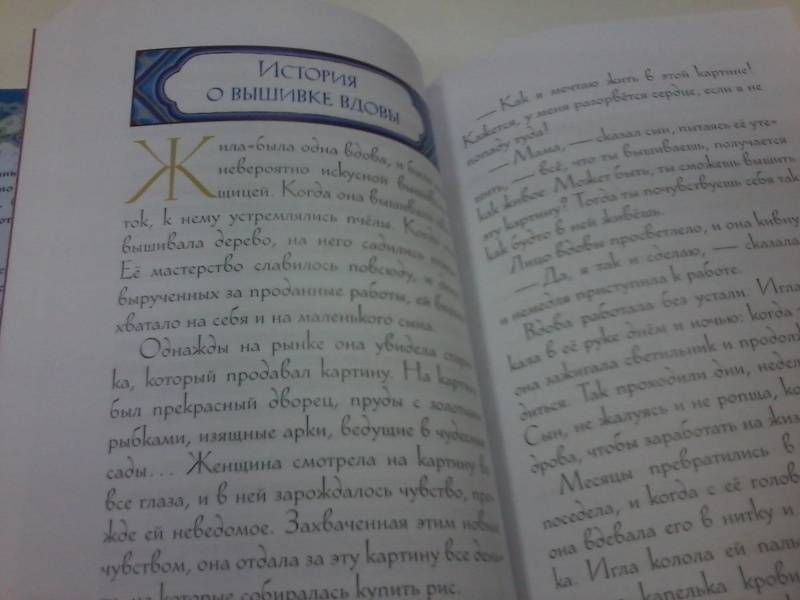 История
о вышивке вдовы
Жила-была одна вдова, и была
невероятно искусной
щицей. Когда она вышивала
ток, к нему устремлялись пчёлы. Когда
вышивала дерево, на него садились
Её мастерство славилось повсюду, и
вырученных за проданные работы, ей
хватало на себя и на маленького сына.
Однажды на рынке она увидела стари-
ка, который продавал картину. На картине
был прекрасный дворец, пруды с золотыми
рыбками, изящные арки, ведущие в чудесные
сады... Женщина смотрела на картину во
все глаза, и в ней зарождалось чувство, пре-
жде ей неведомое. Захваченная этим новым
чувством, она отдала за эту картину все
на которые собиралась купить рис.
— Как я мечтаю жить в этой картине!
Кажется, у меня разорвётся сердце, если я не
попаду туда!
— Мама, — сказал сын, пытаясь её уте-
шить, — всё, что ты вышиваешь, получается
как живое. Может быть, ты сможешь вышить
эту картину? Тогда ты почувствуешь себя так,
как будто в ней живёшь.
Лицо вдовы просветлело, и она кивну
— Да, я так и сделаю, — сказала
и немедля приступила к работе.
Вдова работала без устали. Игла
кала в её руке днём и ночью: когда
она зажигала светильник и продолж
диться. Так проходили дни, недел
Сын, не жалуясь и не ропща, ко
дрова, чтобы заработать на жиз
Месяцы превратились в
поседела, и когда с её голов
она вдевала его в нитку и
ка. Игла колола ей паль
капелька крови